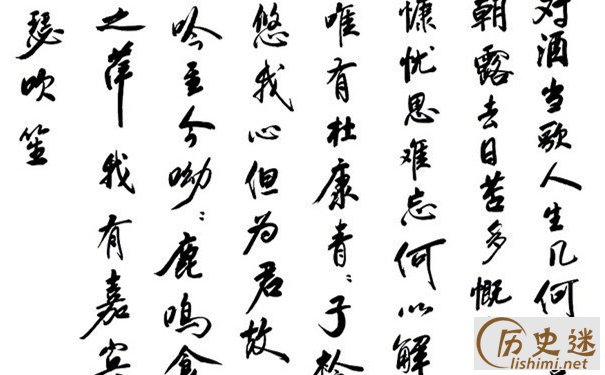 对酒当歌人生几何
朝露去日苦多慨
慷忧思难忘何以解
唯有杜康青：子衿
悠我心但为君故
吟至今呦：鹿鸣食
之苹我有嘉宾
瑟吹笙
历史迷
lishimi.net